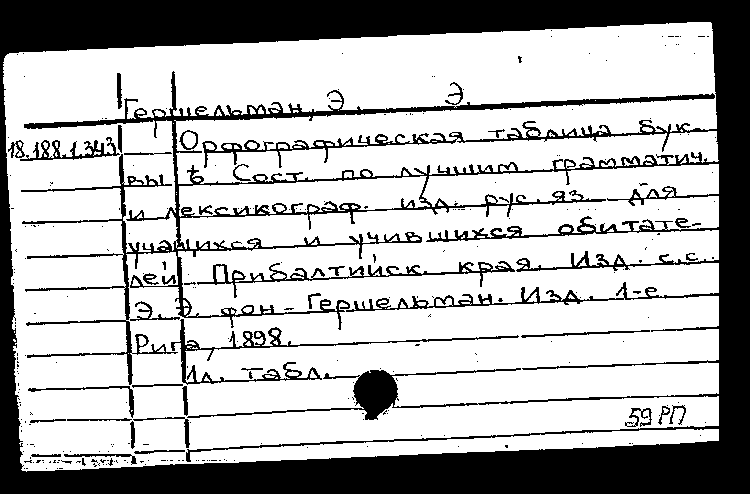 Гершельман, Э. Э.
18.188.1.343 Орфографическая таблица бук-
вы ѣ Сост. по лучшим грамматич.
и лексикограф. изд. рус. яз. для
учащихся и учившихся обитате-
лей Прибалтийск. края. Изд. с.с.
Э. Э. фон-Гершельман. Изд. 1-е.
Рига, 1898.
1л. табл.
59 РП